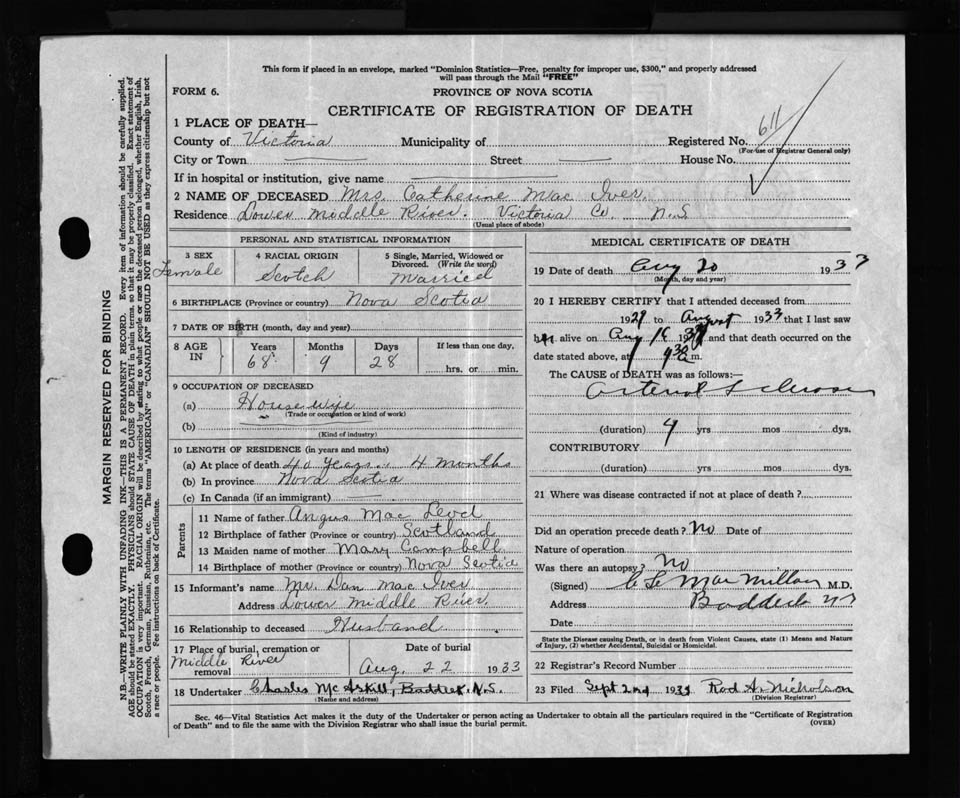 This form if placed in an envelope, marked "Dominion Statistics—Free, penalty for improper use, $300," and properly addressed
will pass through the Mail "FREE"
FORM 6.
PROVINCE OF NOVA SCOTIA
CERTIFICATE OF REGISTRATION OF DEATH
1 PLACE OF DEATH—
County of Victoria Municipality of Registered No. 611
(For use of Registrar General only)
City or Town Street House No.
If in hospital or institution, give name
2 NAME OF DECEASED Mrs. Catherine Mac Iver.
Residence Lower Middle River. Victoria Co. N.S
(Usual place of abode)
PERSONAL AND STATISTICAL INFORMATION
3 SEX Female
4 RACIAL ORIGIN Scotch
5 Single, Married, Widowed or
Divorced. (Write the word)
Married
6 BIRTHPLACE (Province or country) Nova Scotia
7 DATE OF BIRTH (month, day and year)
8 AGE IN
Years Months Days If less than one day,
68 9 28 hrs. or min.
9 OCCUPATION OF DECEASED
(a) House wife
(Trade or occupation or kind of work)
(b)
(Kind of industry)
10 LENGTH OF RESIDENCE (in years and months)
(a) At place of death 40 years 4 months
(b) In province Nova Scotia
(c) In Canada (if an immigrant)
Parents
11 Name of father Angus Mac Leod
12 Birthplace of father (Province or country) Scotland
13 Maiden name of mother Mary Campbell
14 Birthplace of mother (Province or country) Nova Scotia
15 Informant's name Mr. Dan Mac Iver
Address Lower Middle River.
16 Relationship to deceased Husband
17 Place of burial, cremation or
removal Middle River
Date of burial
Aug. 22 1933
18 Undertaker Charles McAskill, Baddeck. N.S.
(Name and address)
MEDICAL CERTIFICATE OF DEATH
19 Date of death Aug 20 1933
(Month, day and year)
20 I HEREBY CERTIFY that I attended deceased from
1929 to August 1933 that I last saw
her alive on Aug 16 1933 and that death occurred on the
date stated above, at m.
The CAUSE of DEATH was as follows:—
Arterial Sclerosis
(duration) 4 yrs mos dys.
CONTRIBUTORY
(duration) yrs mos dys.
21 Where was disease contracted if not at place of death?
Did an operation precede death? No Date of
Nature of operation
Was there an autopsy? No
(Signed) C L MacMillan M.D.
Address Baddeck NS
Date
State the Disease causing Death, or in death from Violent Causes, state (1) Means and Nature
of Injury, (2) whether Accidental, Suicidal or Homicidal.
22 Registrar's Record Number
23 Filed Sept 2nd 1933 Rod A. Nicholson
(Division Registrar)
Sec. 46—Vital Statistics Act makes it the duty of the Undertaker or person acting as Undertaker to obtain all the particulars required in the "Certificate of Registration
of Death" and to file the same with the Division Registrar who shall issue the burial permit.
(OVER)
MARGIN RESERVED FOR BINDING
N.B.—WRITE PLAINLY WITH UNFADING INK—THIS IS A PERMANENT RECORD. Every item of information should be carefully supplied.
AGE should be stated EXACTLY. PHYSICIANS should STATE CAUSE OF DEATH in plain terms, so that it may be properly classified. Exact statement of
OCCUPATION is very important. RACIAL ORIGIN will be described by stating to what people or race the deceased person belonged, whether English, Irish,
Scotch, French, German, Russian, Ruthenian, etc. The terms "AMERICAN" or "CANADIAN" SHOULD NOT BE USED as they express citizenship but not
a race or people. Fee instructions on back of Certificate.